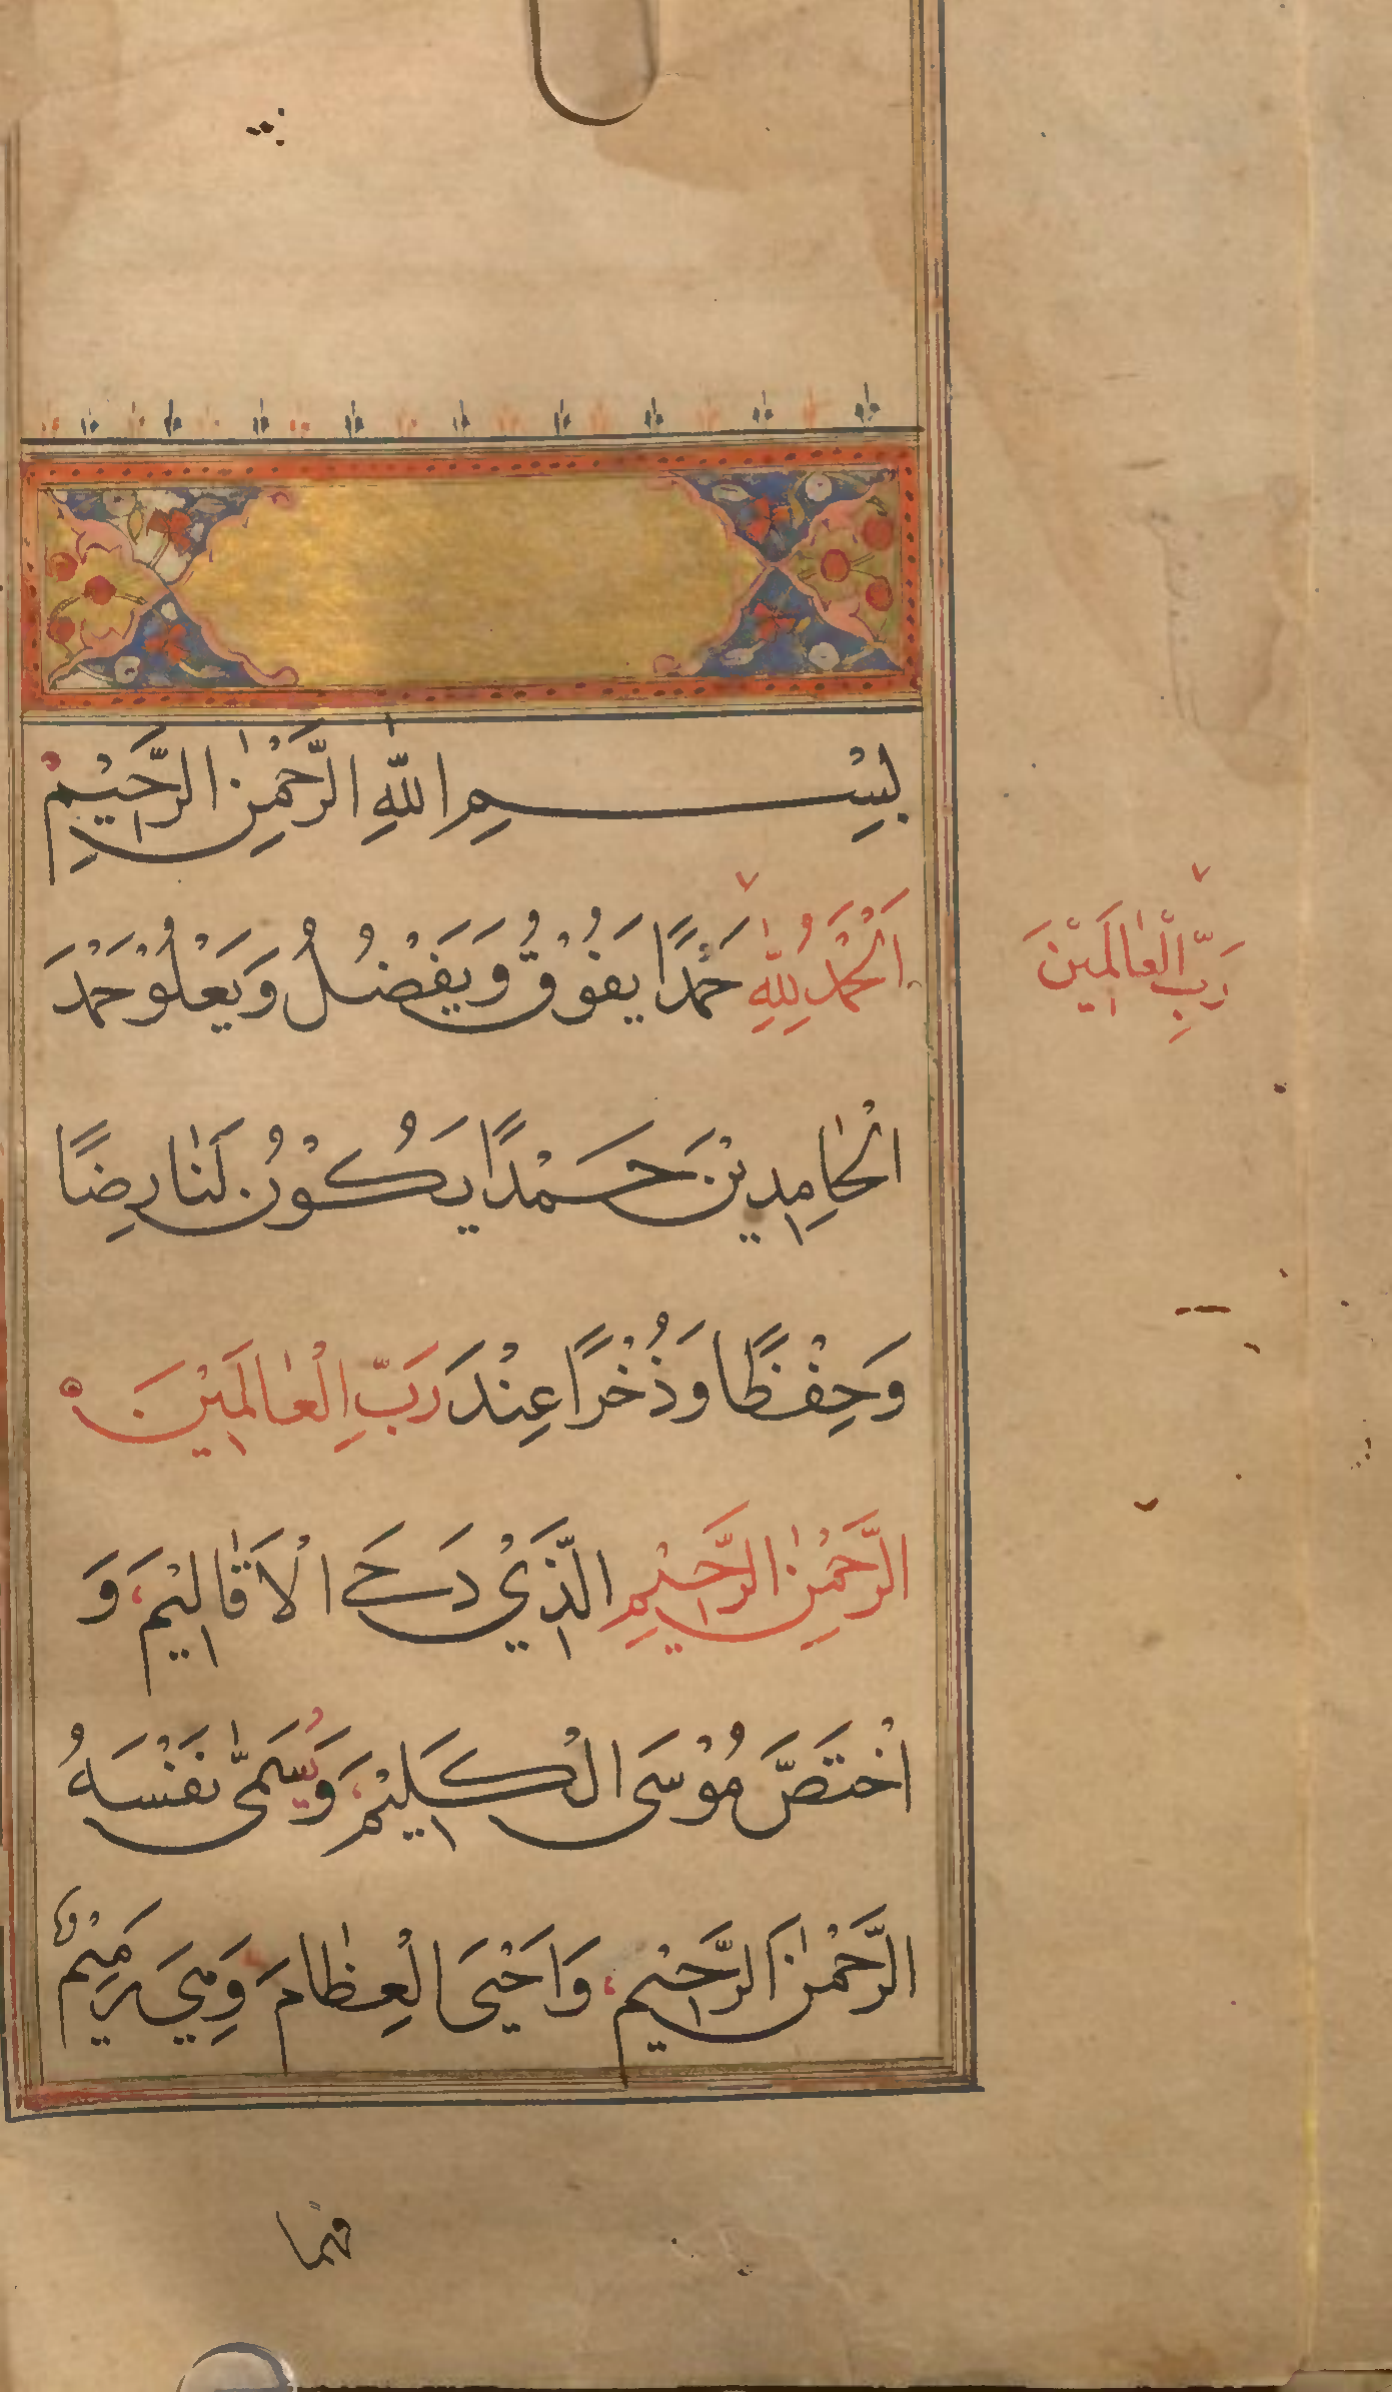 بِسْمِ اللّٰهِ الرَّحْمٰنِ الرَّحِيْمِ
اَلْحَمْدُ لِلّٰهِ حَمْدًا يَفُوْقُ وَيَفْضُلُ وَيَعْلُوْ حَمْدَ
رَبِّ الْعٰالَمِيْنَ
الْحٰامِدِيْنَ حَمْدًا يَكُوْنُ لَنٰا رِضًا
وَحِفْظًا وَذُخْرًا عِنْدَ رَبِّ الْعٰالَمِيْنَ
الرَّحْمٰنِ الرَّحِيْمِ الَّذِيْ دَحَى الْاَقٰالِيْمَ وَ
اخْتَصَّ مُوْسَى الْكَلِيْمَ وَيُسَمّٰى نَفْسَهُ
الرَّحْمٰنَ الرَّحِيْمَ وَاَحْيَى الْعِظٰامَ وَهِيَ رَمِيْمٌ
فهما